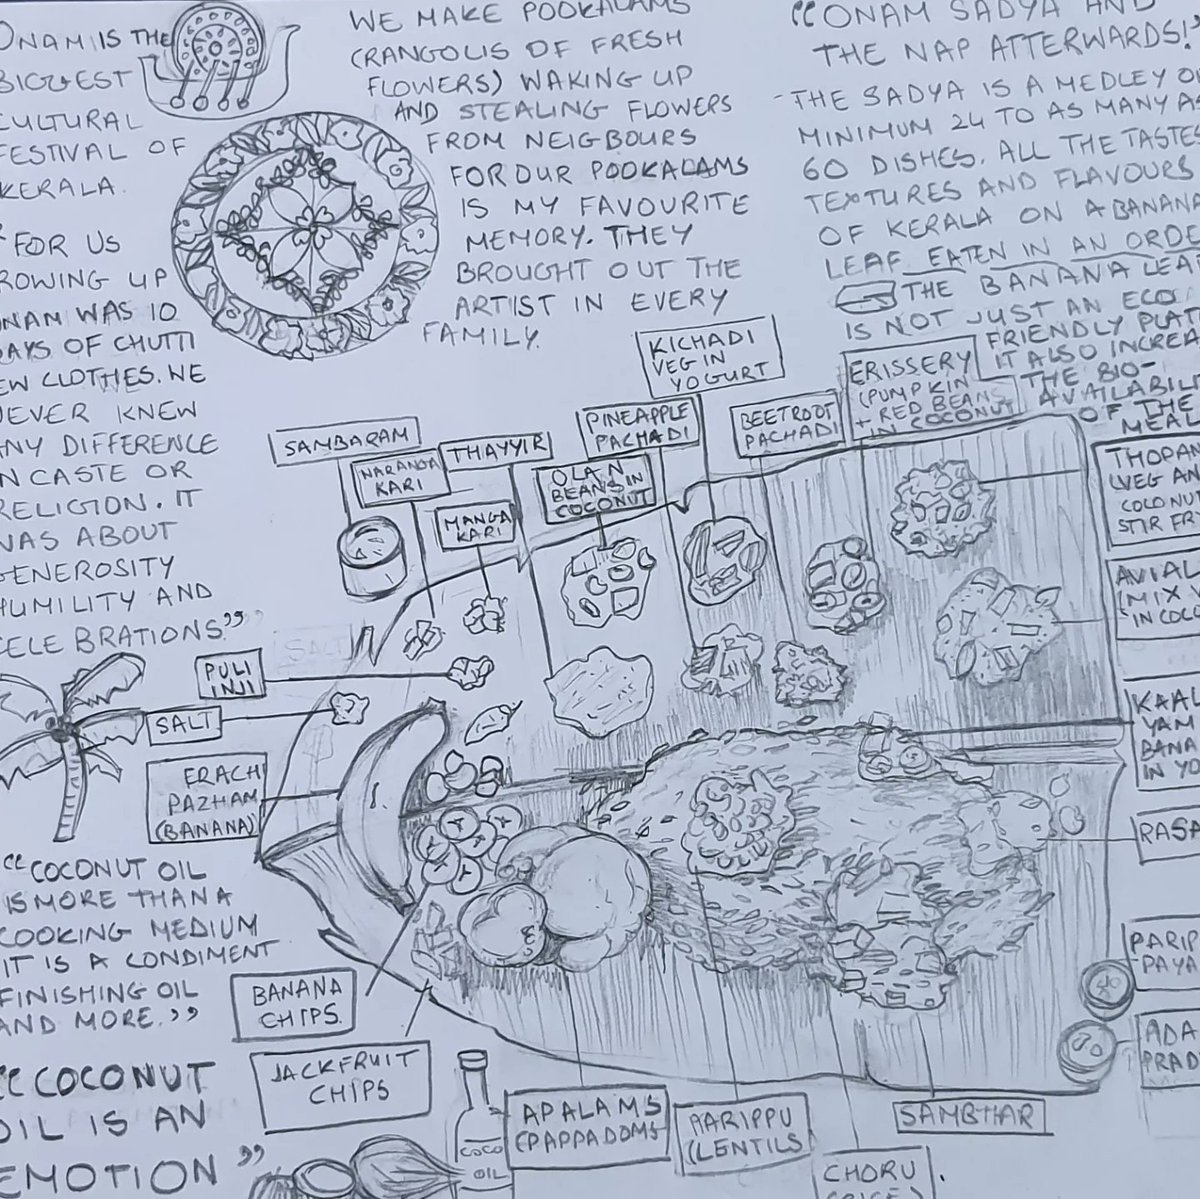 ONAM IS THE
BIGGEST
CULTURAL
FESTIVAL OF
KERALA.
FOR US
ROWING UP
ONAM WAS 10
DAYS OF CHUTTI
EW CLOTHES. WE
NEVER KNEW
ANY DIFFERENCE
IN CASTE OR
RELIGION. IT
WAS ABOUT
GENEROSITY
HUMILITY AND
CELEBRATIONS."
WE MAKE POOKALAMS
(RANGOLIS OF FRESH
FLOWERS) WAKING UP
AND STEALING FLOWERS
FROM NEIGBOURS
FOR OUR POOKALAMS
IS MY FAVOURITE
MEMORY. THEY
BROUGHT OUT THE
ARTIST IN EVERY
FAMILY.
"ONAM SADYA AND
THE NAP ATTERWARDS!"
-THE SADYA IS A MEDLEY O
MINIMUM 24 TO AS MANY AS
60 DISHES. ALL THE TASTES
TEXTURES AND FLAVOURS
OF KERALA ON A BANANA
LEAF EATEN IN AN ORDE
THE BANANA LEAF
IS NOT JUST AN ECO
FRIENDLY PLAT
IT ALSO INCREA
THE BIO-
AVAILABILI
OF THE
MEAL
SAMBARAM
NARANGA
KARI
THAYYIR
MANGA
KARI
OLAN
BEANS IN
COCONUT
PINEAPPLE
PACHADI
KICHADI
VEG IN
YOGURT
BEETROOT
PACHADI
ERISSERY
(PUMPKIN
+ RED BEANS
IN COCONUT
THOPAN
(VEG AN
COCONU
STIR FR
AVIAL
(MIX
IN COC
KAAL
YAM
BANA
IN YO
RAS
PARIP
PAYA
ADA
PRAD
SALT
PULI
INJI
SALT
ERACH
PAZHAM
(BANANA)
BANANA
CHIPS.
JACKFRUIT
CHIPS
APALAMS
(PAPPADOMS
PARIPPU
(LENTILS
SAMBHAR
CHORU
"COCONUT OIL
IS MORE THAN A
COOKING MEDIUM
IT IS A CONDIMENT
FINISHING OIL
AND MORE."
"COCONUT
OIL IS AN
EMOTION"
COCO
OIL